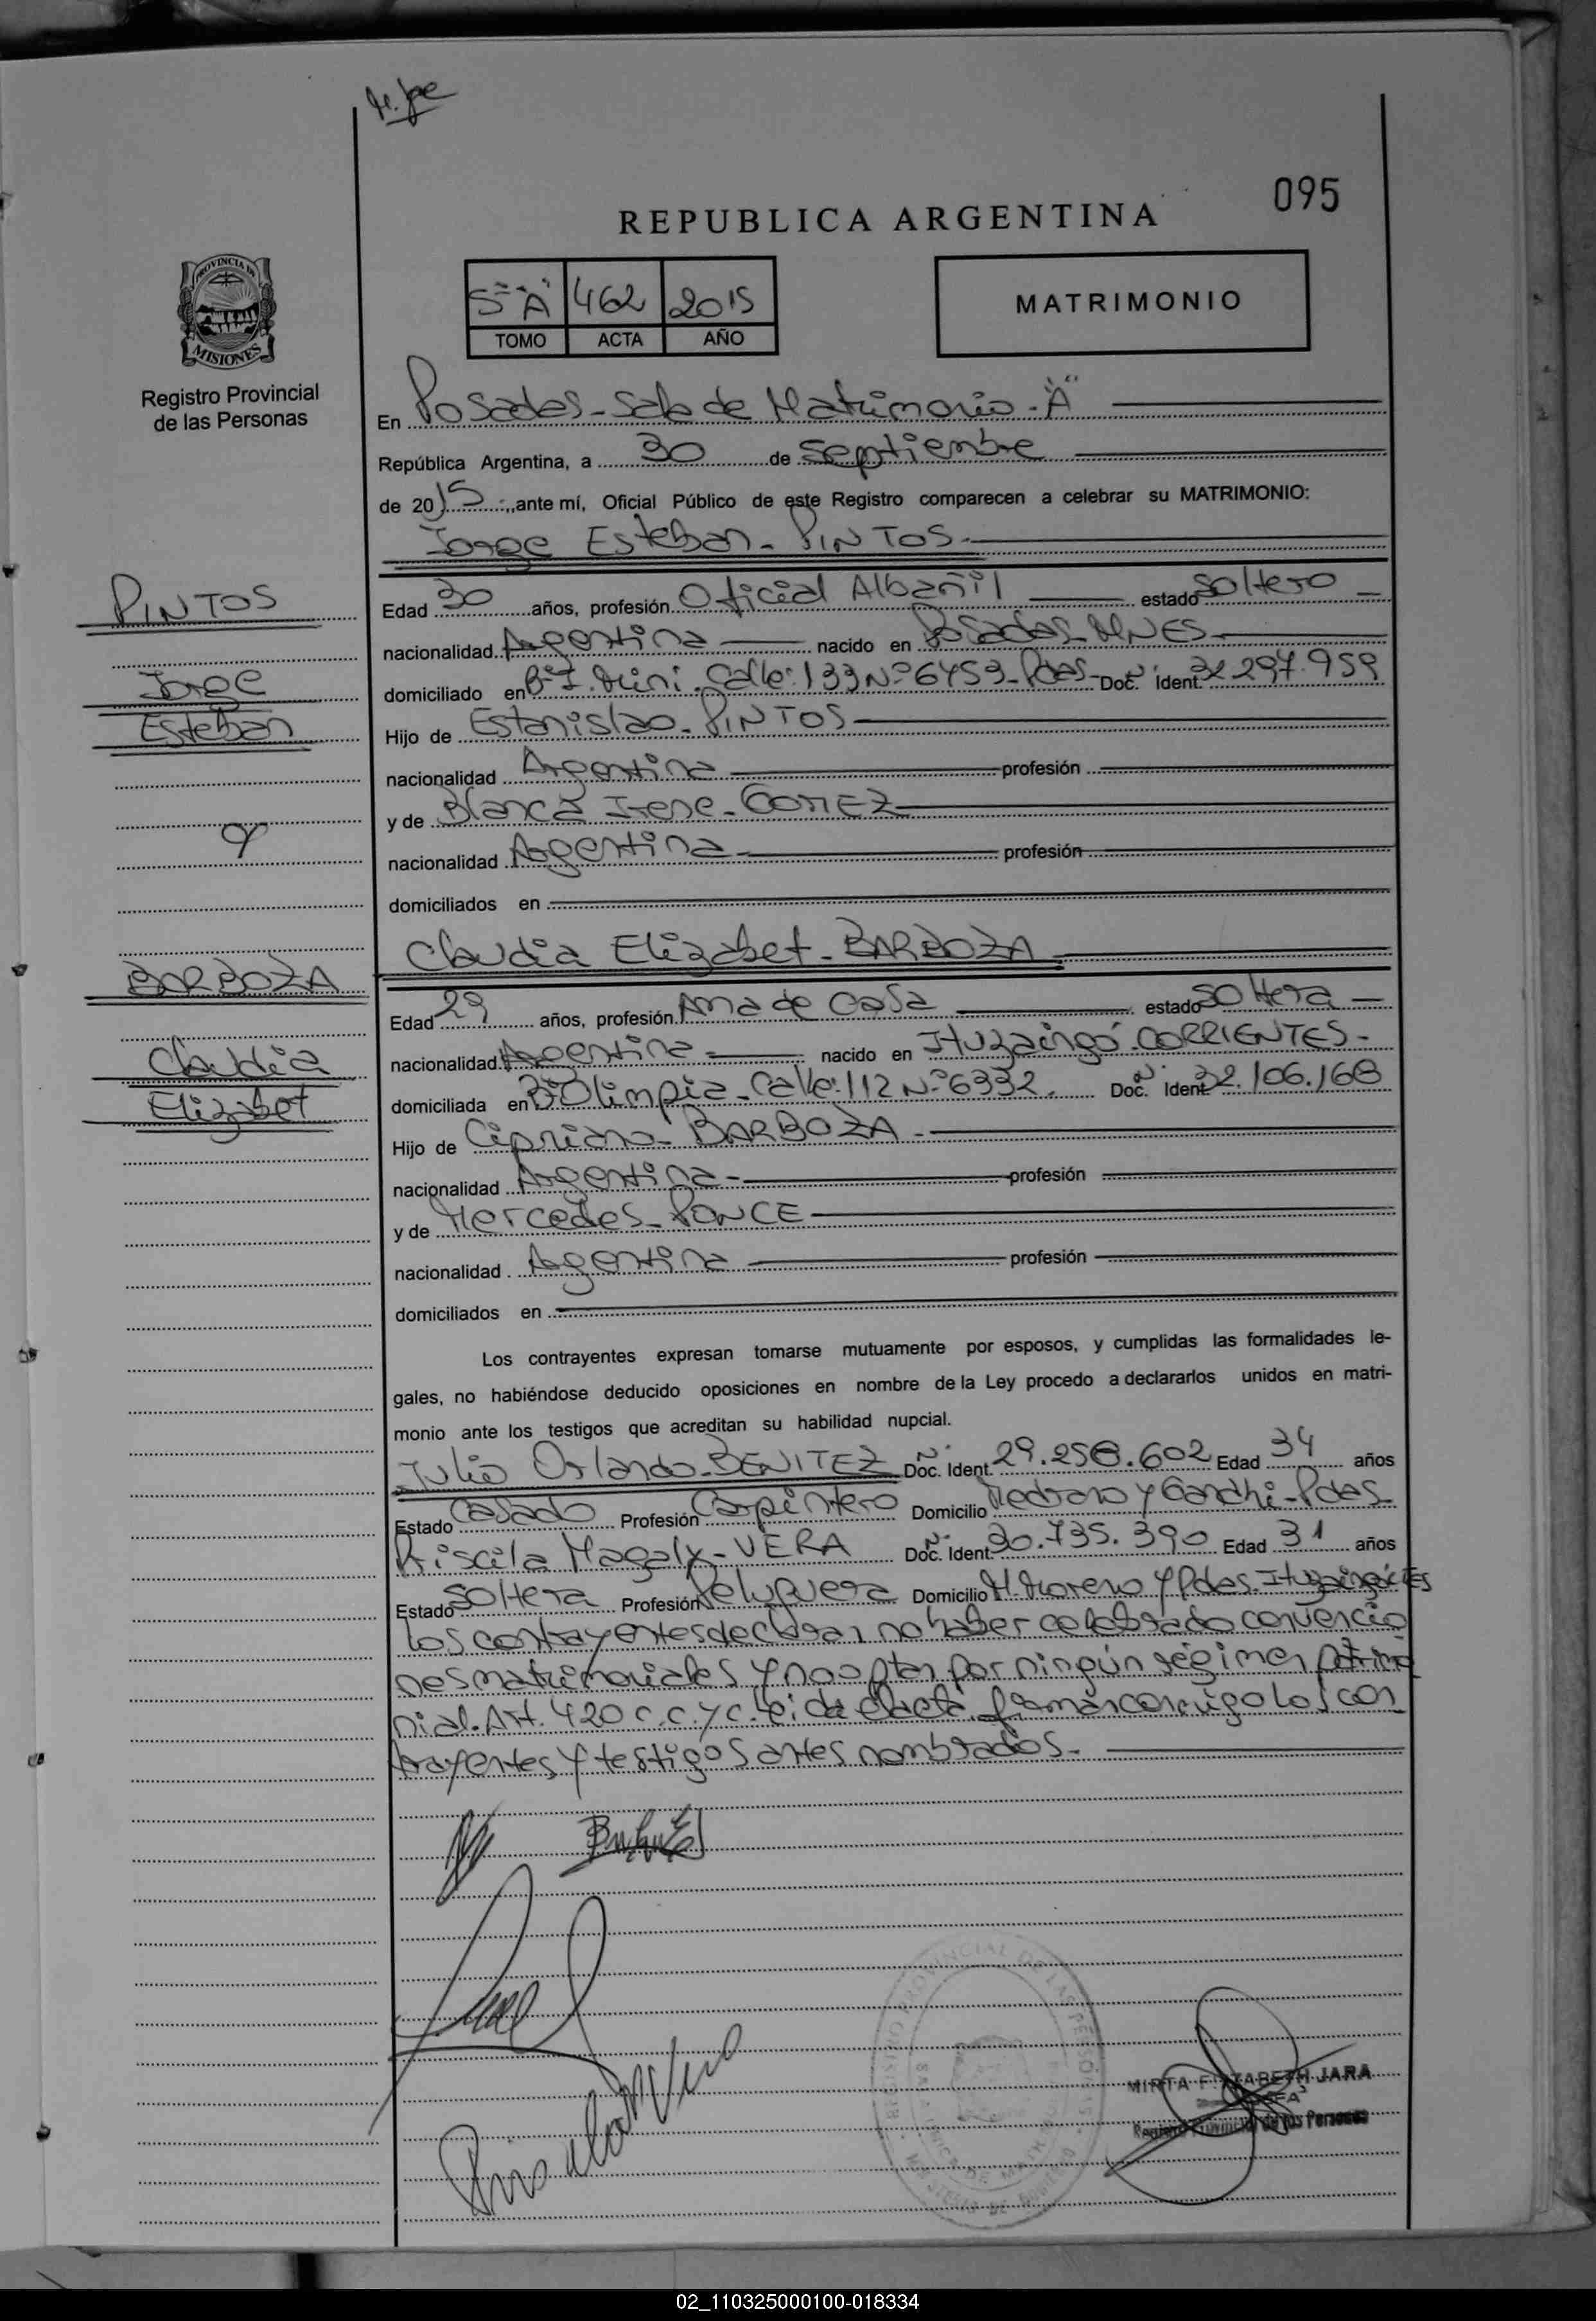 095
REPUBLICA ARGENTINA
5= "A" 462 2015
TOMO ACTA AÑO
MATRIMONIO
PROVINCIA DE
MISIONES
Registro Provincial
de las Personas
En Posadas - Sala de Matrimonio - "A"
República Argentina, a 30 de Septiembre
de 2015, ante mí, Oficial Público de este Registro comparecen a celebrar su MATRIMONIO:
Jorge Esteban - PINTOS -
PINTOS
Jorge
Esteban
y
BARBOZA
Claudia
Elizabet
Edad 30 años, profesión Oficial Albañil estado Soltero
nacionalidad Argentina nacido en Posadas - MNES -
domiciliado en Calle: 133 Nº 6453 - Pdas - Doc. Ident. Nº 32.297.959
Hijo de Estanislao - PINTOS
nacionalidad Argentina profesión
y de Blanca Irene - GOMEZ
nacionalidad Argentina - profesión
domiciliados en
Claudia Elizabet - BARBOZA
Edad 29 años, profesión Ama de Casa estado Soltera
nacionalidad Argentina nacido en Ituzaingó - CORRIENTES -
domiciliada en Bº Olimpia - Calle: 112 Nº 6332. Doc. Ident. Nº 32.106.168
Hijo de Cipriano - BARBOZA -
nacionalidad Argentina - profesión
y de Mercedes - PONCE
nacionalidad Argentina profesión
domiciliados en
Los contrayentes expresan tomarse mutuamente por esposos, y cumplidas las formalidades le-
gales, no habiéndose deducido oposiciones en nombre de la Ley procedo a declararlos unidos en matri-
monio ante los testigos que acreditan su habilidad nupcial.
Julio Orlando - BENITEZ Doc. Ident. Nº 29.258.602 Edad 34 años
Estado Casado Profesión Carpintero Domicilio Medrano y Gandhi - Pdas -
Priscila Magaly - VERA Doc. Ident. Nº 30.735.390 Edad 31 años
Estado Soltera Profesión Peluquera Domicilio M. Moreno y Pdas. Ituzaingó Ctes
Los contrayentes declaran no haber celebrado convencio
nes matrimoniales y no optan por ningún régimen patrimo
nial. Art. 420 C.C. y C. Leida el acta, firman conmigo los con
trayentes y testigos antes nombrados.
Priscila M Vera
REGISTRO PROVINCIAL DE LAS PERSONAS
MIRTA ELIZABETH JARA
Registro Provincial de las Personas
02_110325000100-018334